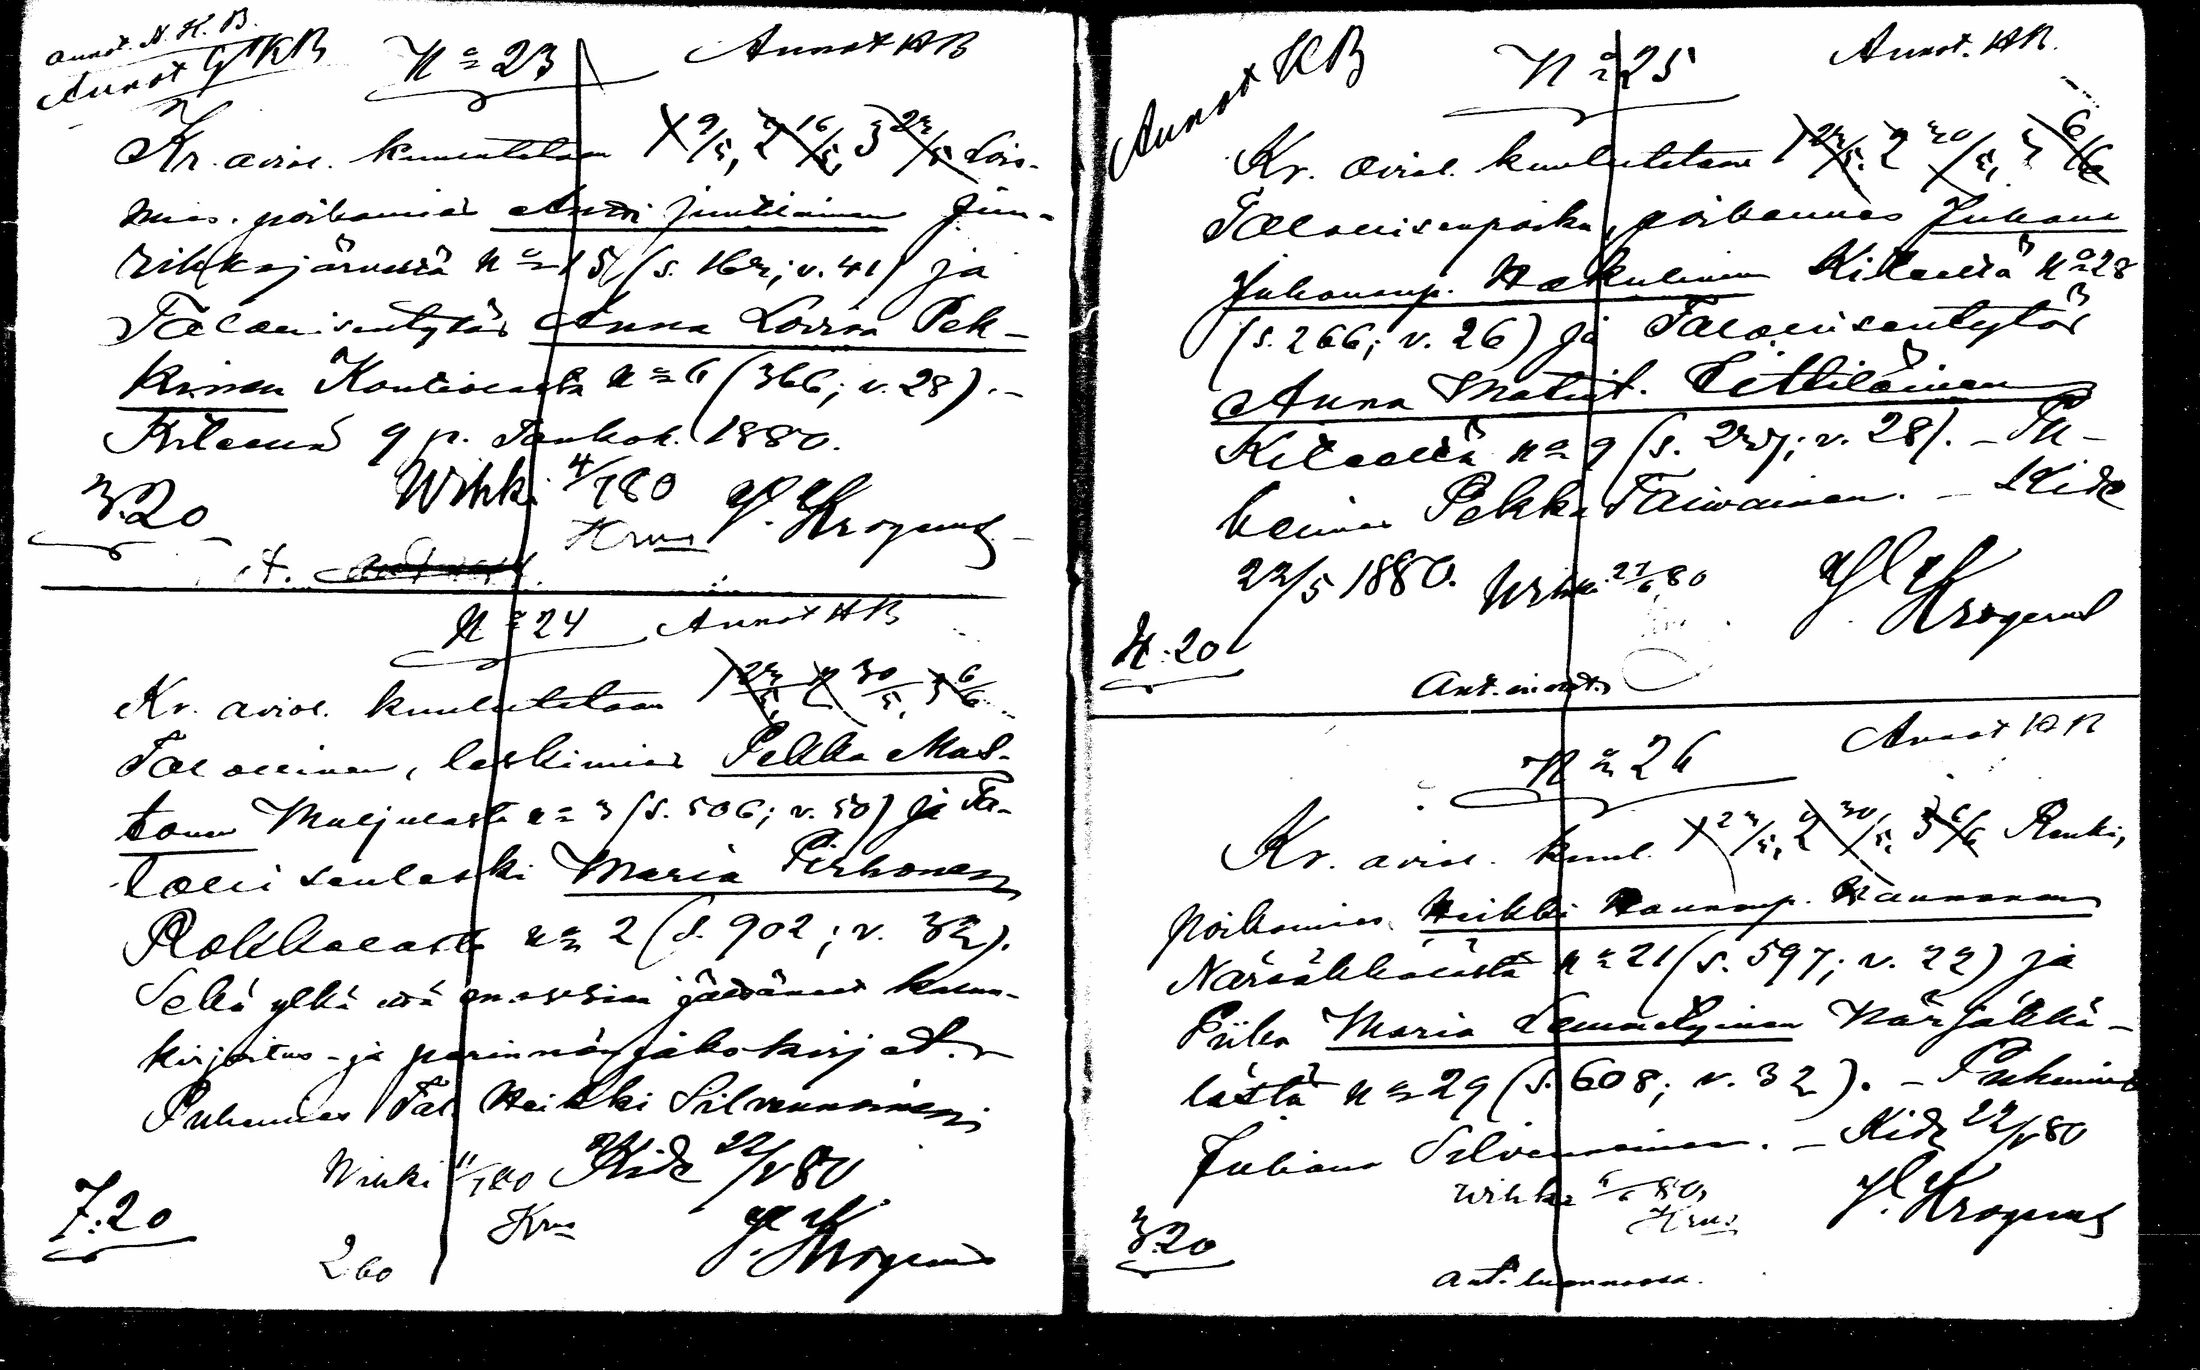 Annot. N. K. B.
Annot GKB
No 23
Annot HB
Kr. aviol. kuulutetaan 1 9/5, 2 16/5, 3 23/5 Lois-
mies. poikamies Antti Juutilainen Juu-
rikkajärvestä No 15 (s. 163; v. 41) ja
Talollisentytär Anna Loviisa Pek-
kinen Kontiolasta No 6 (366; v. 28). -
Kiteellä 9 p. Toukok. 1880.
3.20
Wihki 4/7 80
Krus
H. Krogerus
No 24
Annot HB
Kr. aviol. kuulutetaan 1 23/5, 2 30/5, 3 6/6
Talollinen, leskimies Pekka Mus-
tonen Muljulasta No 3 (s. 506; v. 50) ja Ta-
lollisenleski Maria Pirhonen
Rokkalasta No 2 (s. 902; v. 33).
Sekä ylkä että morsian jättäneet kalun-
kirjoitus- ja perinnönjakokirjat. -
Puhemies Tal. Heikki Silvennoinen
Wihki 11/7 80 Kide 22/5 80
7:20
Krus
H. Krogerus
260
Annot KB
No 25
Annot. HB.
Kr. aviol. kuulutetaan 1 23/5. 2 30/5, 3 6/6
Talollisenpoika, poikamies Juhana
Juhananp. Hakulinen Kiteeltä No 28
(s. 266; v. 26) ja Talollisentytär
Anna Matint. Littiläinen
Kiteeltä No 9 (s. 237; v. 28). - Pu-
hemies Pekka Taiwainen. - Kide
22/5 1880. Wihki 27/6 80
H. Krogerus
4:20
No 26
Annot HB
Kr. aviol. kuul. 1 23/5, 2 30/5, 3 6/6 Renki,
poikamies Heikki Hannunp. Hannonen
Närsäkkälästä No 21 (s. 597; v. 22) ja
Piika Maria Lemmetyinen Närsäkkä-
lästä No 29 (s. 608; v. 32). - Puhemies
Juhana Silvennoinen. - Kide 22/5 80
Wihki 6/6 80
Krus
H. Krogerus
3:20